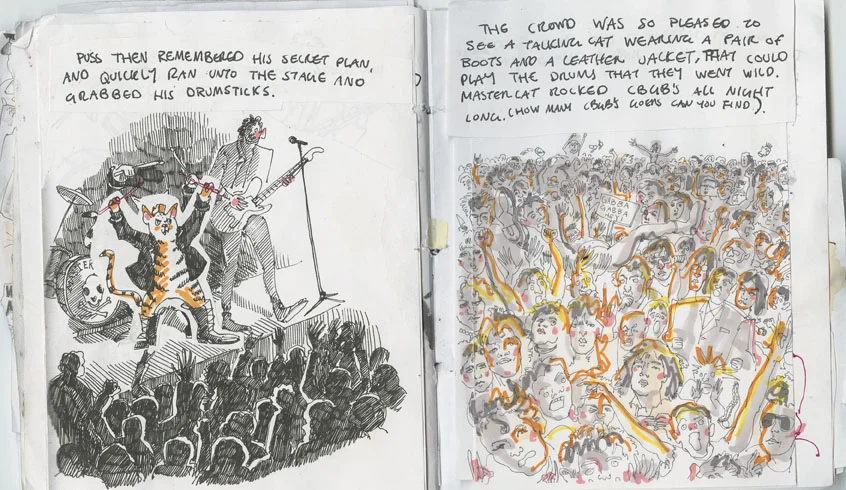 PUSS THEN REMEMBERED HIS SECRET PLAN,
AND QUICKLY RAN UNTO THE STAGE AND
GRABBED HIS DRUMSTICKS.
THE CROWD WAS SO PLEASED TO
SEE A TALKING CAT WEARING A PAIR OF
BOOTS AND A LEATHER JACKET, THAT COULD
PLAY THE DRUMS THAT THEY WENT WILD.
MASTER CAT ROCKED CBGB'S ALL NIGHT
LONG. (HOW MANY CBGB'S GOERS CAN YOU FIND?).
GABBA
GABBA